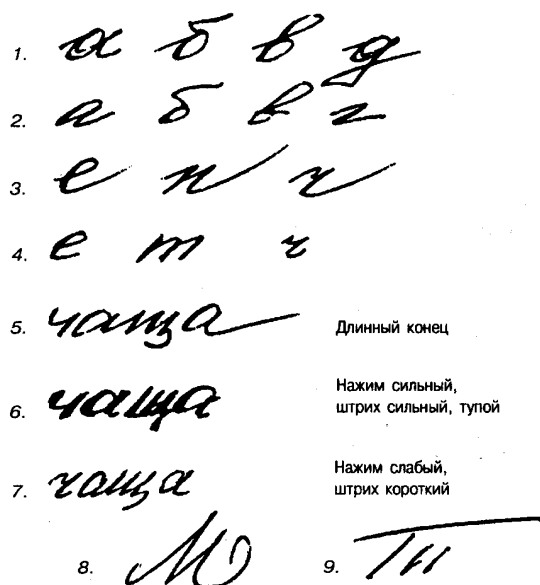 1. а б в д
2. а б в г
3. е н ч
4. е т ч
5. чаща Длинный конец
6. чаща Нажим сильный,
штрих сильный, тупой
7. чаща Нажим слабый,
штрих короткий
8. М 9. Тн